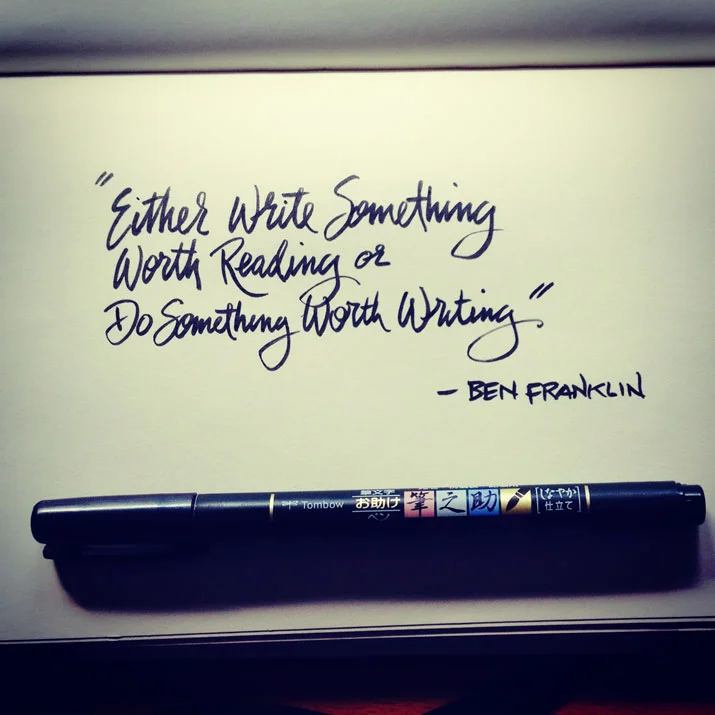 "Either Write Something
Worth Reading or
Do Something Worth Writing."
- BEN FRANKLIN
Tombow
筆文字
お助け
ペン
筆之助
しなやか
仕立て